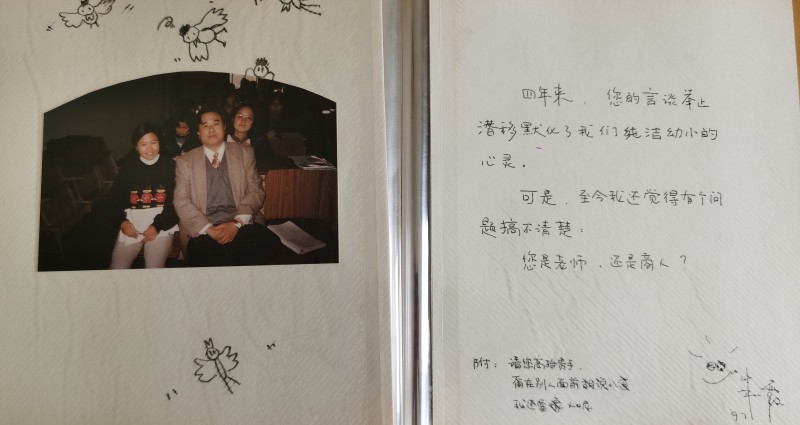 四年来，您的言谈举止
潜移默化了我们纯洁幼小的
心灵。
可是，至今我还觉得有个问
题搞不清楚：
您是老师，还是商人？
附：请您高抬贵手，
甭在别人面前胡说八道
我还要嫁
97